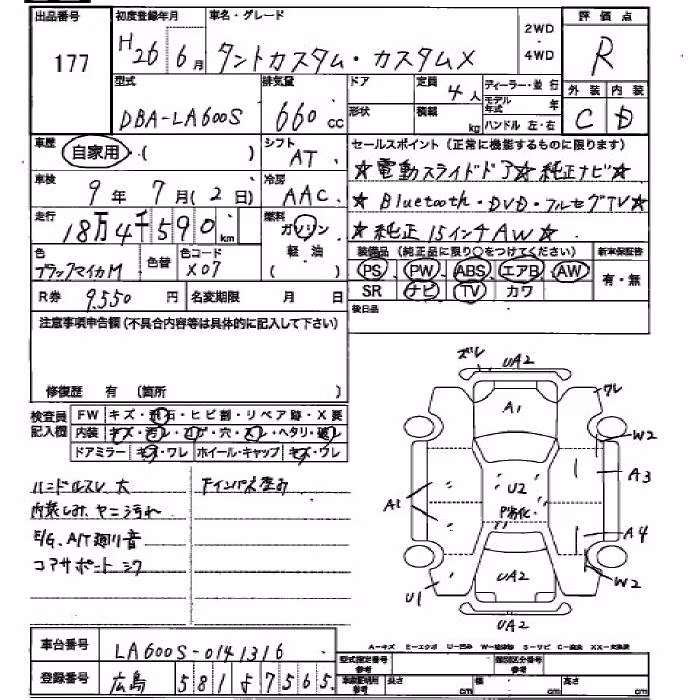 出品番号 初度登録年月 車名・グレード 2WD ・ 4WD 評価点
177 H26 6月 タントカスタム・カスタムX R
型式 排気量 ドア 定員 4人 ディーラー・並行 外装 内装
DBA-LA600S 660cc 形状 積載 kg モデル年式 年 C D
ハンドル 左・右
車歴 自家用 ・( ) シフト AT セールスポイント (正常に機能するものに限ります)
☆電動スライドドア☆純正ナビ☆
車検 9年 7月(2日) 冷房 AAC
☆Bluetooth・DVD・フルセグTV☆
走行 18万4千590km 燃料 ガソリン
☆純正15インチAW☆
軽・油
( )
色 ブラックマイカM 色替 色コード X07 装備品 (純正品に限り○をつけてください) 新車保証書
PS PW ABS エアB AW 有・無
R券 9550円 名変期限 月 日 SR ナビ TV カワ
注意事項申告欄 (不具合内容等は具体的に記入して下さい) 後日品
修復歴 有 (箇所 )
検査員記入欄 FW キズ・飛石・ヒビ割・リペア跡・X要
内装 キズ・汚レ・コゲ・穴・スレ・ヘタリ・破レ
ドアミラー キズ・ワレ ホイール・キャップ キズ・ワレ
ハンドルスレ 大 Fインパネ歪み
内装しみ、ヤニ汚れ
E/G、A/T廻り音
コアサポートシワ
ズレ UA2
ワレ
A1
W2
A3
A1 U2
P劣化
A4
U1 UA2 W2
UA2
車台番号 LA600S-0141316 A-キズ E-エクボ U-凹み S-サビ C-腐食 XX-交換済
登録番号 広島 581 よ 7565 型式指定番号 参考 類別区分番号 参考
長さ cm 幅 cm 高さ cm